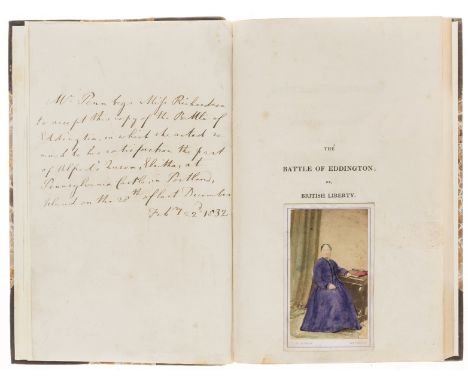 Mr. Penn begs Miss Richardson
to accept this copy of the Battle of
Eddington, in which she acted so
much to his satisfaction the part
of Alfred's Queen, at
Pennsylvania Castle in Portland,
Island on the 28th of last December
Feby. 22d. 1832
THE
BATTLE OF EDDINGTON;
OR,
BRITISH LIBERTY.